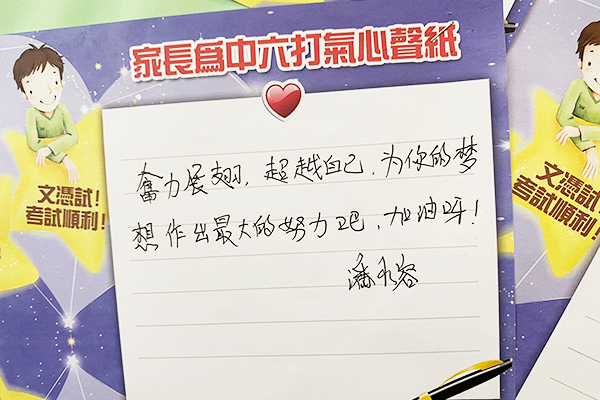 家長為中六打氣心聲紙
奮力展翅,超越自己,为你的梦
想作出最大的努力吧,加油呀!
潘永容
文憑試!
考試順利!
文憑試!
考試順利!